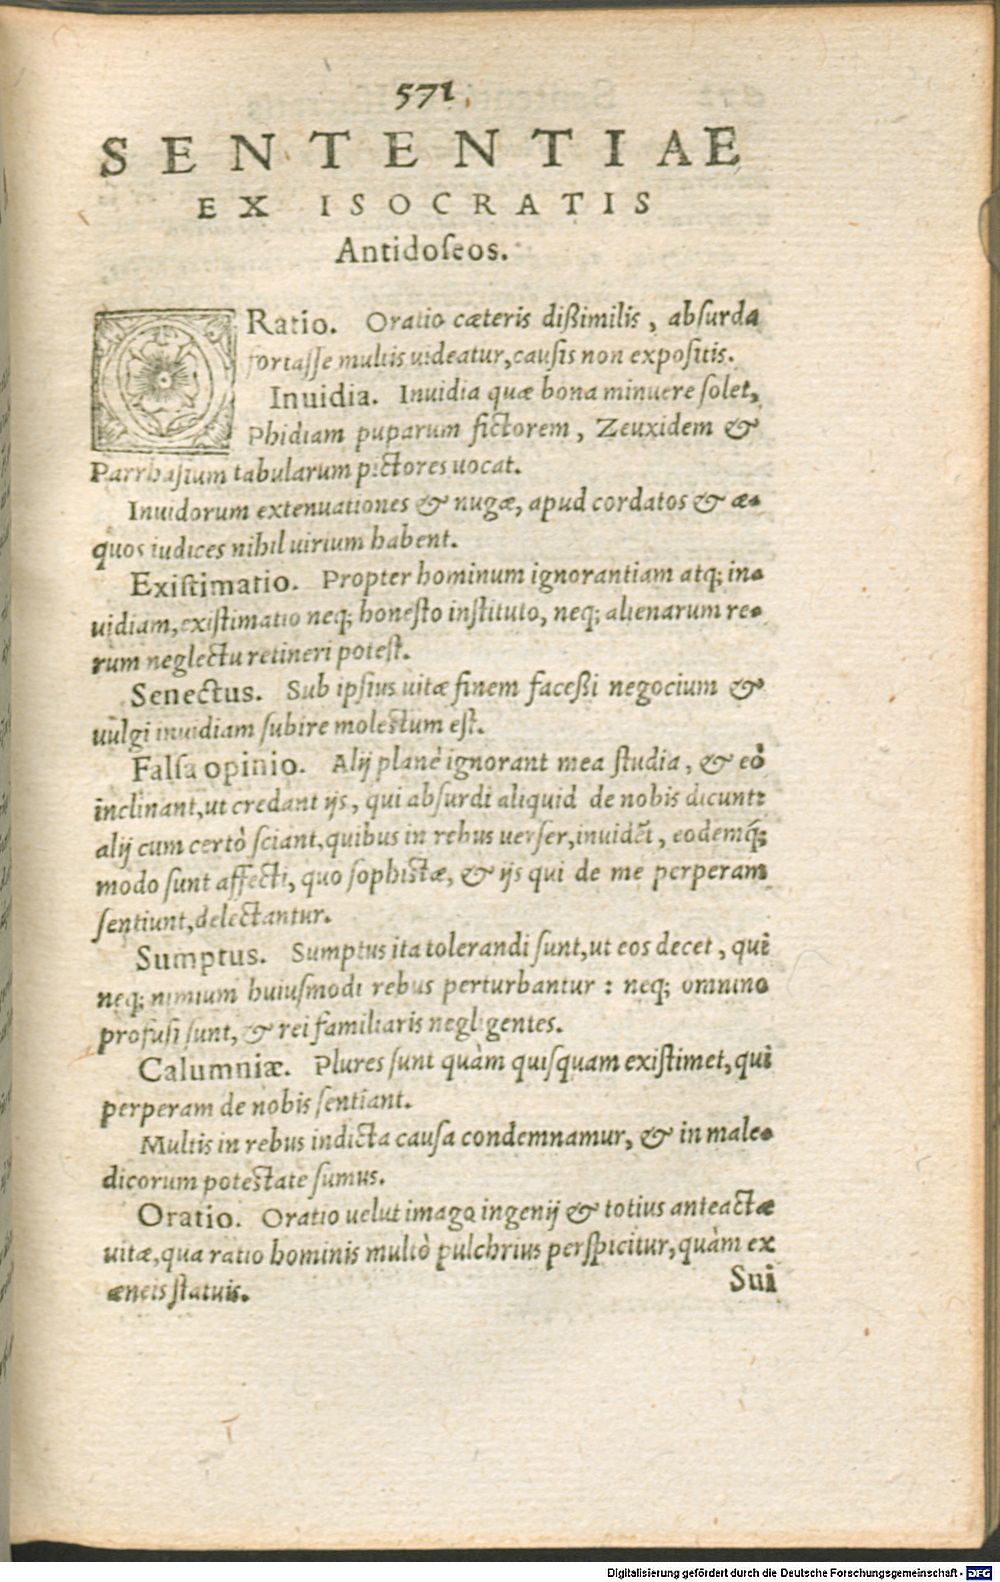 571
SENTENTIAE
EX ISOCRATIS
Antidoſeos.
ORatio. Oratio cæteris dißimilis, abſurda
fortaſſe multis uideatur, cauſis non expoſitis.
Inuidia. Inuidia quæ bona minuere ſolet,
Phidiam puparum fictorem, Zeuxidem &
Parrhaſium tabularum pictores uocat.
Inuidorum extenuationes & nugæ, apud cordatos & æ-
quos iudices nihil uirium habent.
Exiſtimatio. Propter hominum ignorantiam atq; in-
uidiam, exiſtimatio neq; honeſto inſtituto, neq; alienarum re-
rum neglectu retineri poteſt.
Senectus. Sub ipſius uitæ finem faceßi negocium &
uulgi inuidiam ſubire moleſtum eſt.
Falſa opinio. Alij planè ignorant mea ſtudia, & eò
inclinant, ut credant ijs, qui abſurdi aliquid de nobis dicunt:
alij cum certò ſciant, quibus in rebus uerſer, inuidẽt, eodemq́;
modo ſunt affecti, quo ſophiſtæ, & ijs qui de me perperam
ſentiunt, delectantur.
Sumptus. Sumptus ita tolerandi ſunt, ut eos decet, qui
neq; nimium huiuſmodi rebus perturbantur: neq; omnino
profuſi ſunt, & rei familiaris negligentes.
Calumniæ. Plures ſunt quàm quiſquam exiſtimet, qui
perperam de nobis ſentiant.
Multis in rebus indicta cauſa condemnamur, & in male-
dicorum poteſtate ſumus.
Oratio. Oratio uelut imago ingenij & totius anteactæ
uitæ, qua ratio hominis multò pulchrius perſpicitur, quàm ex
æneis ſtatuis.
Sui
Digitalisierung gefördert durch die Deutsche Forschungsgemeinschaft - DFG